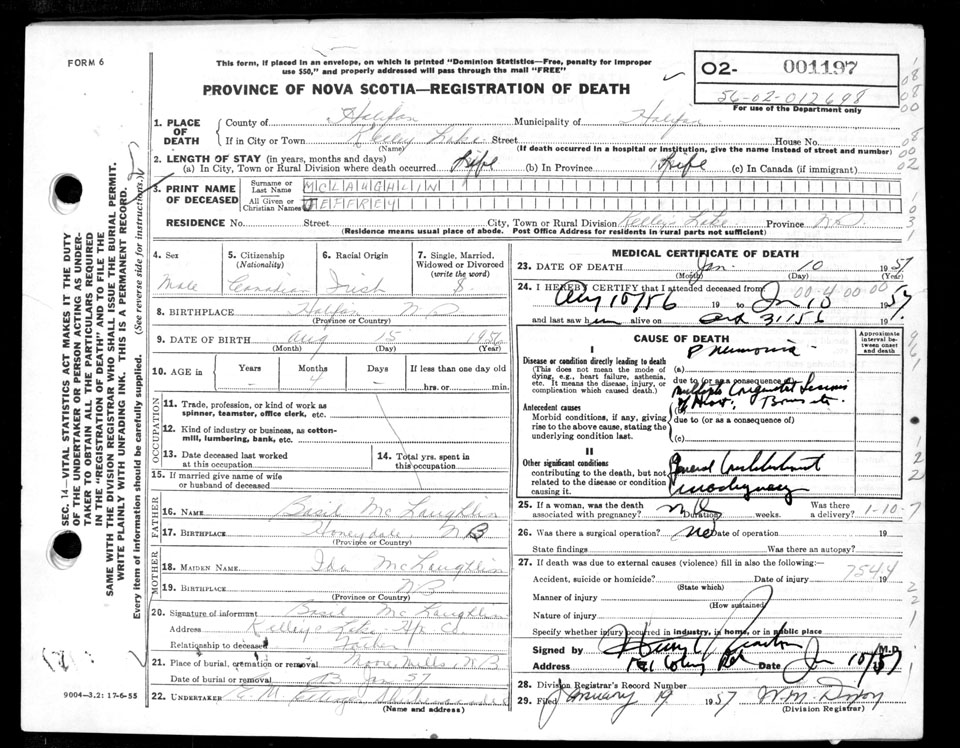 FORM 6
This form, if placed in an envelope, on which is printed "Dominion Statistics—Free, penalty for improper
use $50," and properly addressed will pass through the mail "FREE"
PROVINCE OF NOVA SCOTIA—REGISTRATION OF DEATH
02- 001197
56-02-012698
For use of the Department only
1. PLACE OF DEATH
County of Halifax Municipality of Halifax
If in City or Town Kelley Lake Street House No.
(Name) (If death occurred in a hospital or institution, give the name instead of street and number)
2. LENGTH OF STAY (in years, months and days)
(a) In City, Town or Rural Division where death occurred Life (b) In Province Life (c) In Canada (if immigrant)
3. PRINT NAME OF DECEASED
Surname or Last Name MCLAUGHLIN
All Given or Christian Names JEFFREY
RESIDENCE No. Street City, Town or Rural Division Kelley's Lake Province N.S.
(Residence means usual place of abode. Post Office Address for residents in rural parts not sufficient)
4. Sex Male
5. Citizenship (Nationality) Canadian
6. Racial Origin Irish
7. Single, Married, Widowed or Divorced (write the word) S.
8. BIRTHPLACE Halifax N.S.
(Province or Country)
9. DATE OF BIRTH Aug 15 1956
(Month) (Day) (Year)
10. AGE in Years – Months 4 Days – If less than one day old hrs. or min.
OCCUPATION
11. Trade, profession, or kind of work as spinner, teamster, office clerk, etc.
12. Kind of industry or business, as cotton-mill, lumbering, bank, etc.
13. Date deceased last worked at this occupation
14. Total yrs. spent in this occupation
15. If married give name of wife or husband of deceased
FATHER
16. NAME Basil McLaughlin
17. BIRTHPLACE Honeydale, NB
(Province or Country)
MOTHER
18. MAIDEN NAME Ida McLaughlin
19. BIRTHPLACE NB
(Province or Country)
20. Signature of informant Basil McLaughlin
Address Kelley's Lake Hfx Co.
Relationship to deceased Father
21. Place of burial, cremation or removal Moores Mills, NB
Date of burial or removal Jan 57
22. UNDERTAKER E. M.
(Name and address)
MEDICAL CERTIFICATE OF DEATH
23. DATE OF DEATH Jan. 10 1957
(Month) (Day) (Year)
24. I HEREBY CERTIFY that I attended deceased from 00-4 00 00
Aug 15/56 19 to Jan 10 1957.
and last saw him alive on 31 56 19
CAUSE OF DEATH
Approximate interval between onset and death
I
Disease or condition directly leading to death
(This does not mean the mode of dying, e.g., heart failure, asthenia, etc. It means the disease, injury, or complication which caused death.)
(a) Pneumonia
due to (or as a consequence of)
Multiple Congenital Lesions
of Heart,
Antecedent causes
Morbid conditions, if any, giving rise to the above cause, stating the underlying condition last.
due to (or as a consequence of)
(c)
II
Other significant conditions
contributing to the death, but not related to the disease or condition causing it.
General
25. If a woman, was the death associated with pregnancy? no Duration weeks. Was there a delivery? 1-10-7
26. Was there a surgical operation? no Date of operation 19
State findings Was there an autopsy?
27. If death was due to external causes (violence) fill in also the following:—
Accident, suicide or homicide? Date of injury 7544 19
(State which)
Manner of injury
(How sustained)
Nature of injury
Specify whether injury occurred in industry, in home, or in public place
Signed by Harry M.D.
Address Rd Date Jan 10/57
28. Division Registrar's Record Number
29. Filed January 19 1957 W.M. Dixon
(Division Registrar)
SEC. 14—VITAL STATISTICS ACT MAKES IT THE DUTY
OF THE UNDERTAKER OR PERSON ACTING AS UNDER-
TAKER TO OBTAIN ALL THE PARTICULARS REQUIRED
IN THE "REGISTRATION OF DEATH" AND TO FILE THE
SAME WITH THE DIVISION REGISTRAR WHO SHALL ISSUE THE BURIAL PERMIT.
WRITE PLAINLY WITH UNFADING INK. THIS IS A PERMANENT RECORD.
Every item of information should be carefully supplied. (See reverse side for instructions.)
9004—3.2: 17-6-55